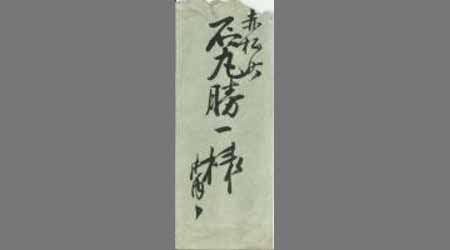 赤松
石丸勝一様